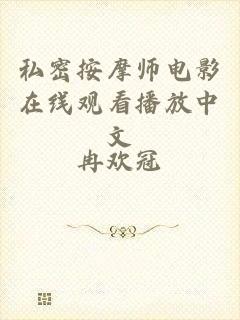 私密按摩师电影
在线观看播放中
文
冉欢冠